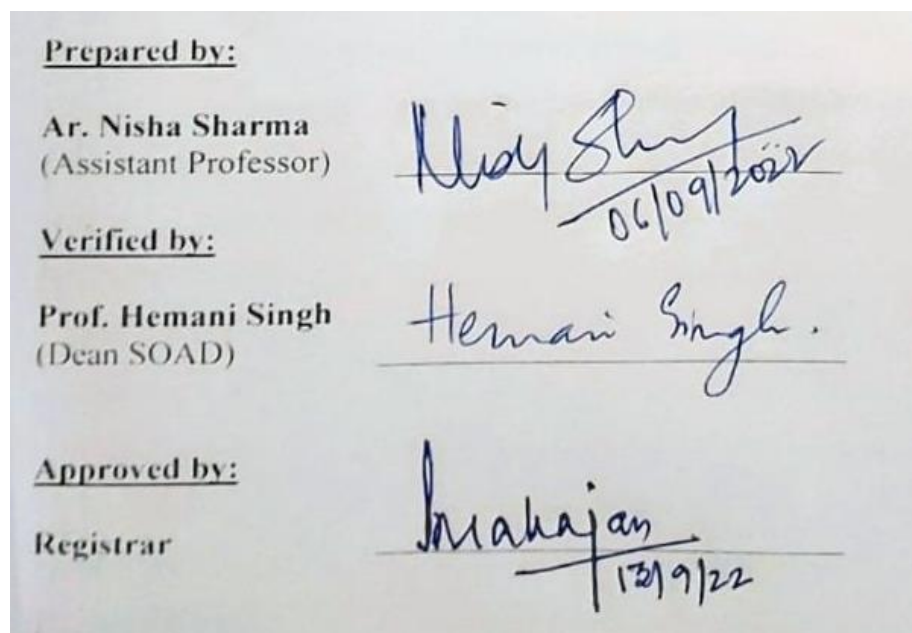 Prepared by:
Ar. Nisha Sharma
(Assistant Professor)
06/09/2022
Verified by:
Prof. Hemani Singh
Hemani Singh.
(Dean SOAD)
Approved by:
Registrar
Mahajan
13/9/22